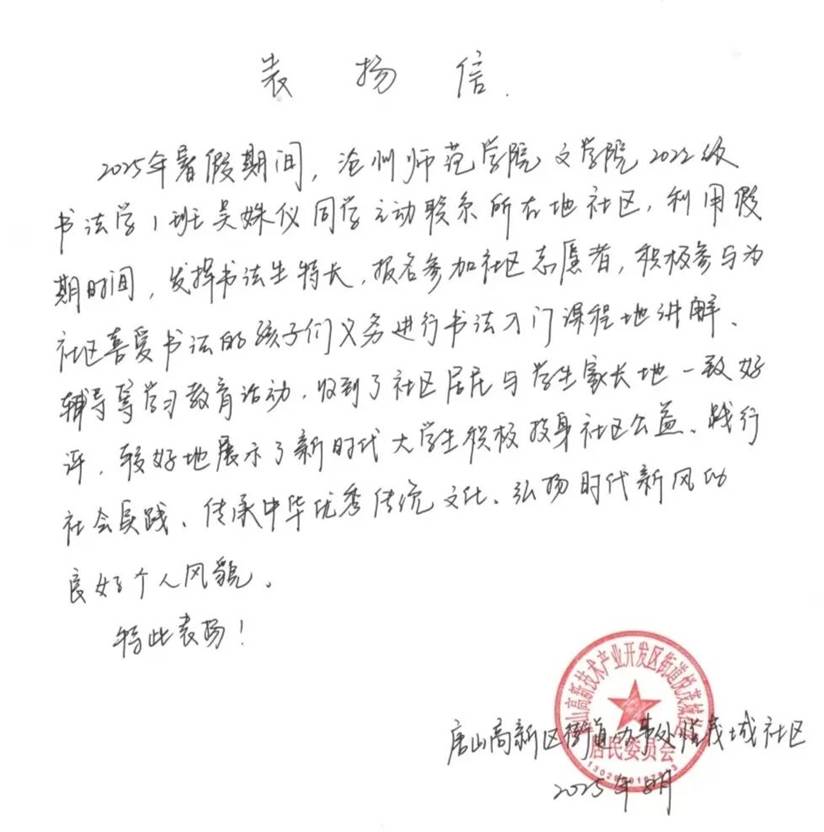 表扬信.
2025年暑假期间，沧州师范学院文学院2022级
书法学1班吴姝仪同学主动联系所在地社区，利用假
期时间，发挥书法生特长，报名参加社区志愿者，积极参与为
社区喜爱书法的孩子们义务进行书法入门课程地讲解、
辅导等学习教育活动，收到了社区居民与学生家长地一致好
评，较好地展示了新时代大学生积极投身社区公益、践行
社会实践、传承中华优秀传统文化、弘扬时代新风的
良好个人风貌。
特此表扬！
唐山高新技术产业开发区街道悦茂
居民委员会
唐山高新区街道办事处悦茂城社区
2025年8月